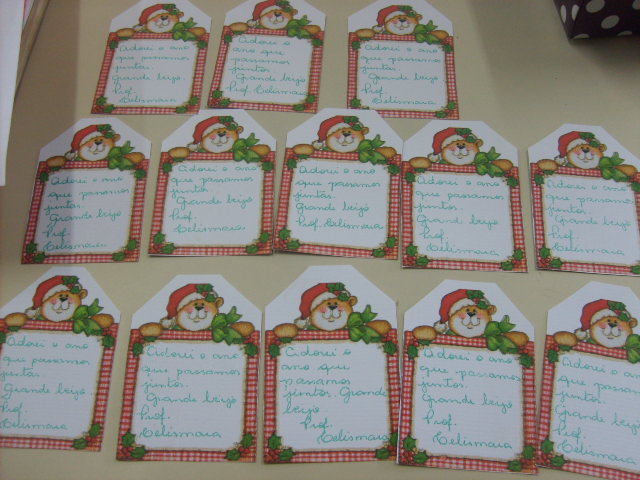 Adorei o ano
que passamos
juntos.
Grande beijo
Prof.
Celismaia
Adorei o
ano que
passamos
juntos.
Grande beijo
Prof.
Celismaia
Adorei o ano
que passamos
juntos.
Grande beijo
Prof.
Celismaia
Adorei o ano
que passamos
juntos.
Grande beijo
Prof.
Celismaia
Adorei o ano
que passamos
juntos.
Grande beijo
Prof.
Celismaia
Adorei o ano
que passamos
juntos.
Grande beijo
Prof. Celismaia
Adorei o ano
que passamos
juntos.
Grande beijo
Prof.
Celismaia
Adorei o ano
que passamos
juntos.
Grande beijo
Prof.
Celismaia
Adorei o ano
que passamos
juntos.
Grande beijo
Prof.
Celismaia
Adorei o ano
que passamos
juntos.
Grande beijo
Prof.
Celismaia
Adorei o
ano que
passamos
juntos. Grande
beijo
Prof.
Celismaia
Adorei o ano
que passamos
juntos.
Grande beijo
Prof.
Celismaia
Adorei o ano
que passamos
juntos.
Grande beijo
Prof.
Celismaia